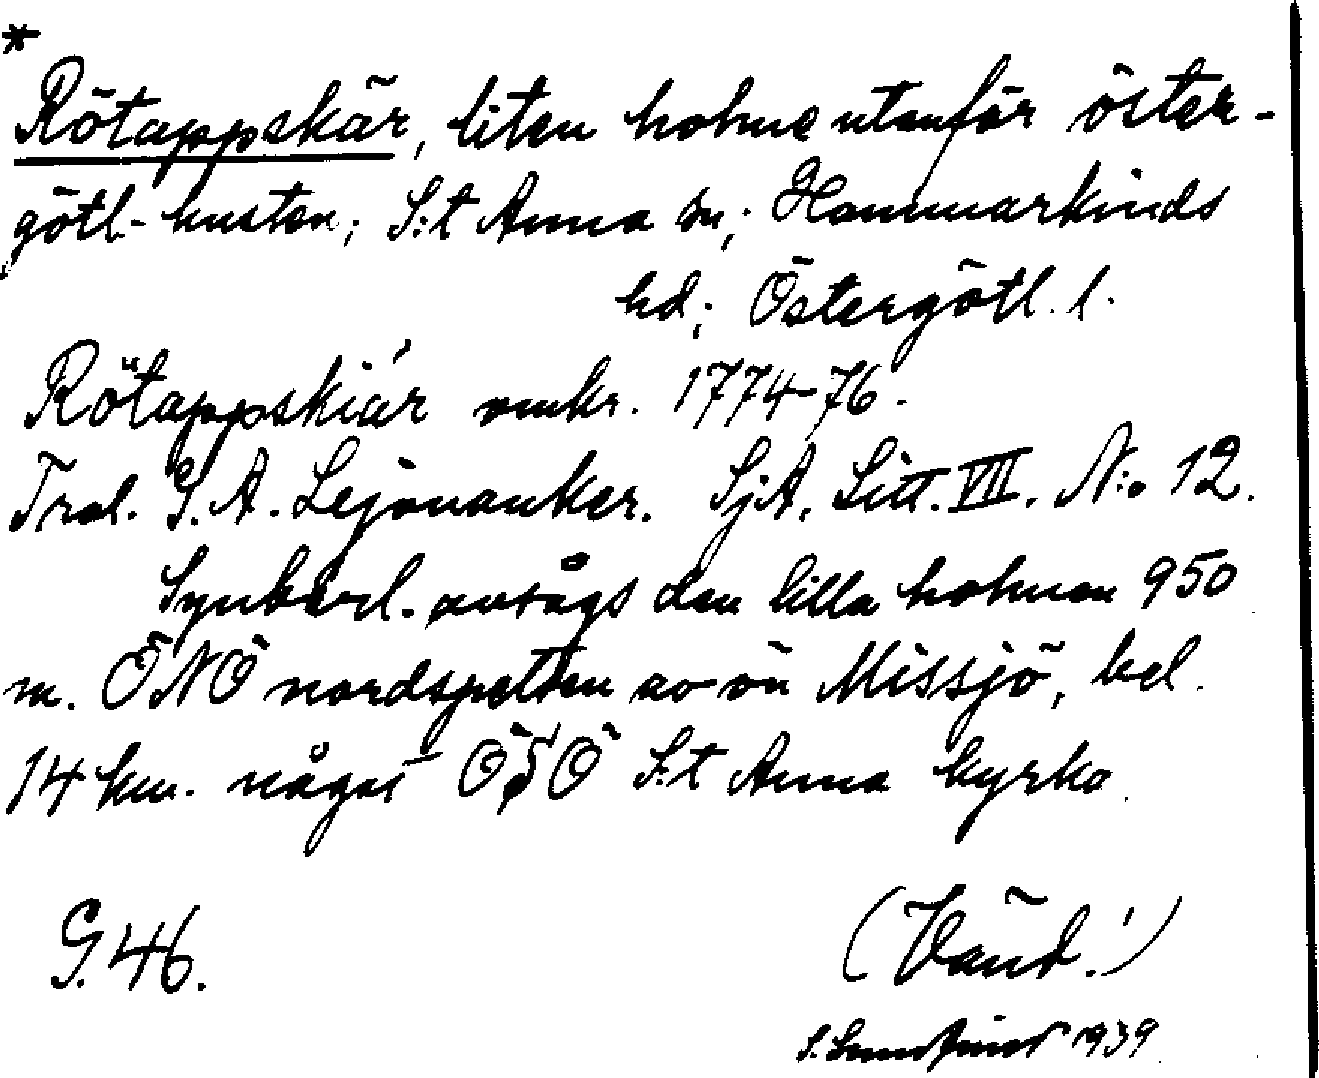 *
Rötappskär, liten holme utanför öster-
götl-kusten; S:t Anna sn; Hammarkinds
hd; Östergötl. l.
Rötappskiär omkr. 1774-76.
Tral. G. A. Lejonanker. SjA. Litt. VIII. N:o 12.
Synbarl. avsågs den lilla holmen 950
m. ÖNÖ nordspetsen av ön Missjö, bel.
14 km. något ÖSÖ S:t Anna kyrka.
G. 46.
(Vänd!)
S. 1939